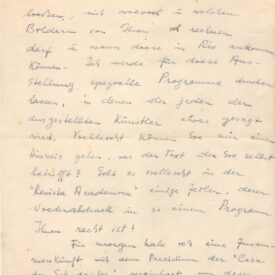 mit wieviel u welchen
Bildern von Ihnen ich rechnen
darf u wann diese in Rio ankommen
können. Ich werde für diese Aus-
stellung spezielle Programme drucken
lassen, in denen über jeden der
ausgestellten Künstler etwas gesagt
wird. Vielleicht können Sie mir einen
Hinweis geben, was den Text über Sie selbst
betrifft? Gibt es vielleicht in der
"Revista Academica" einige Zeilen, deren
Wiederabdruck in so einem Programm
Ihnen recht ist?
Für morgen habe ich eine Zusam
menkunft mit dem Präsidium der "Casa